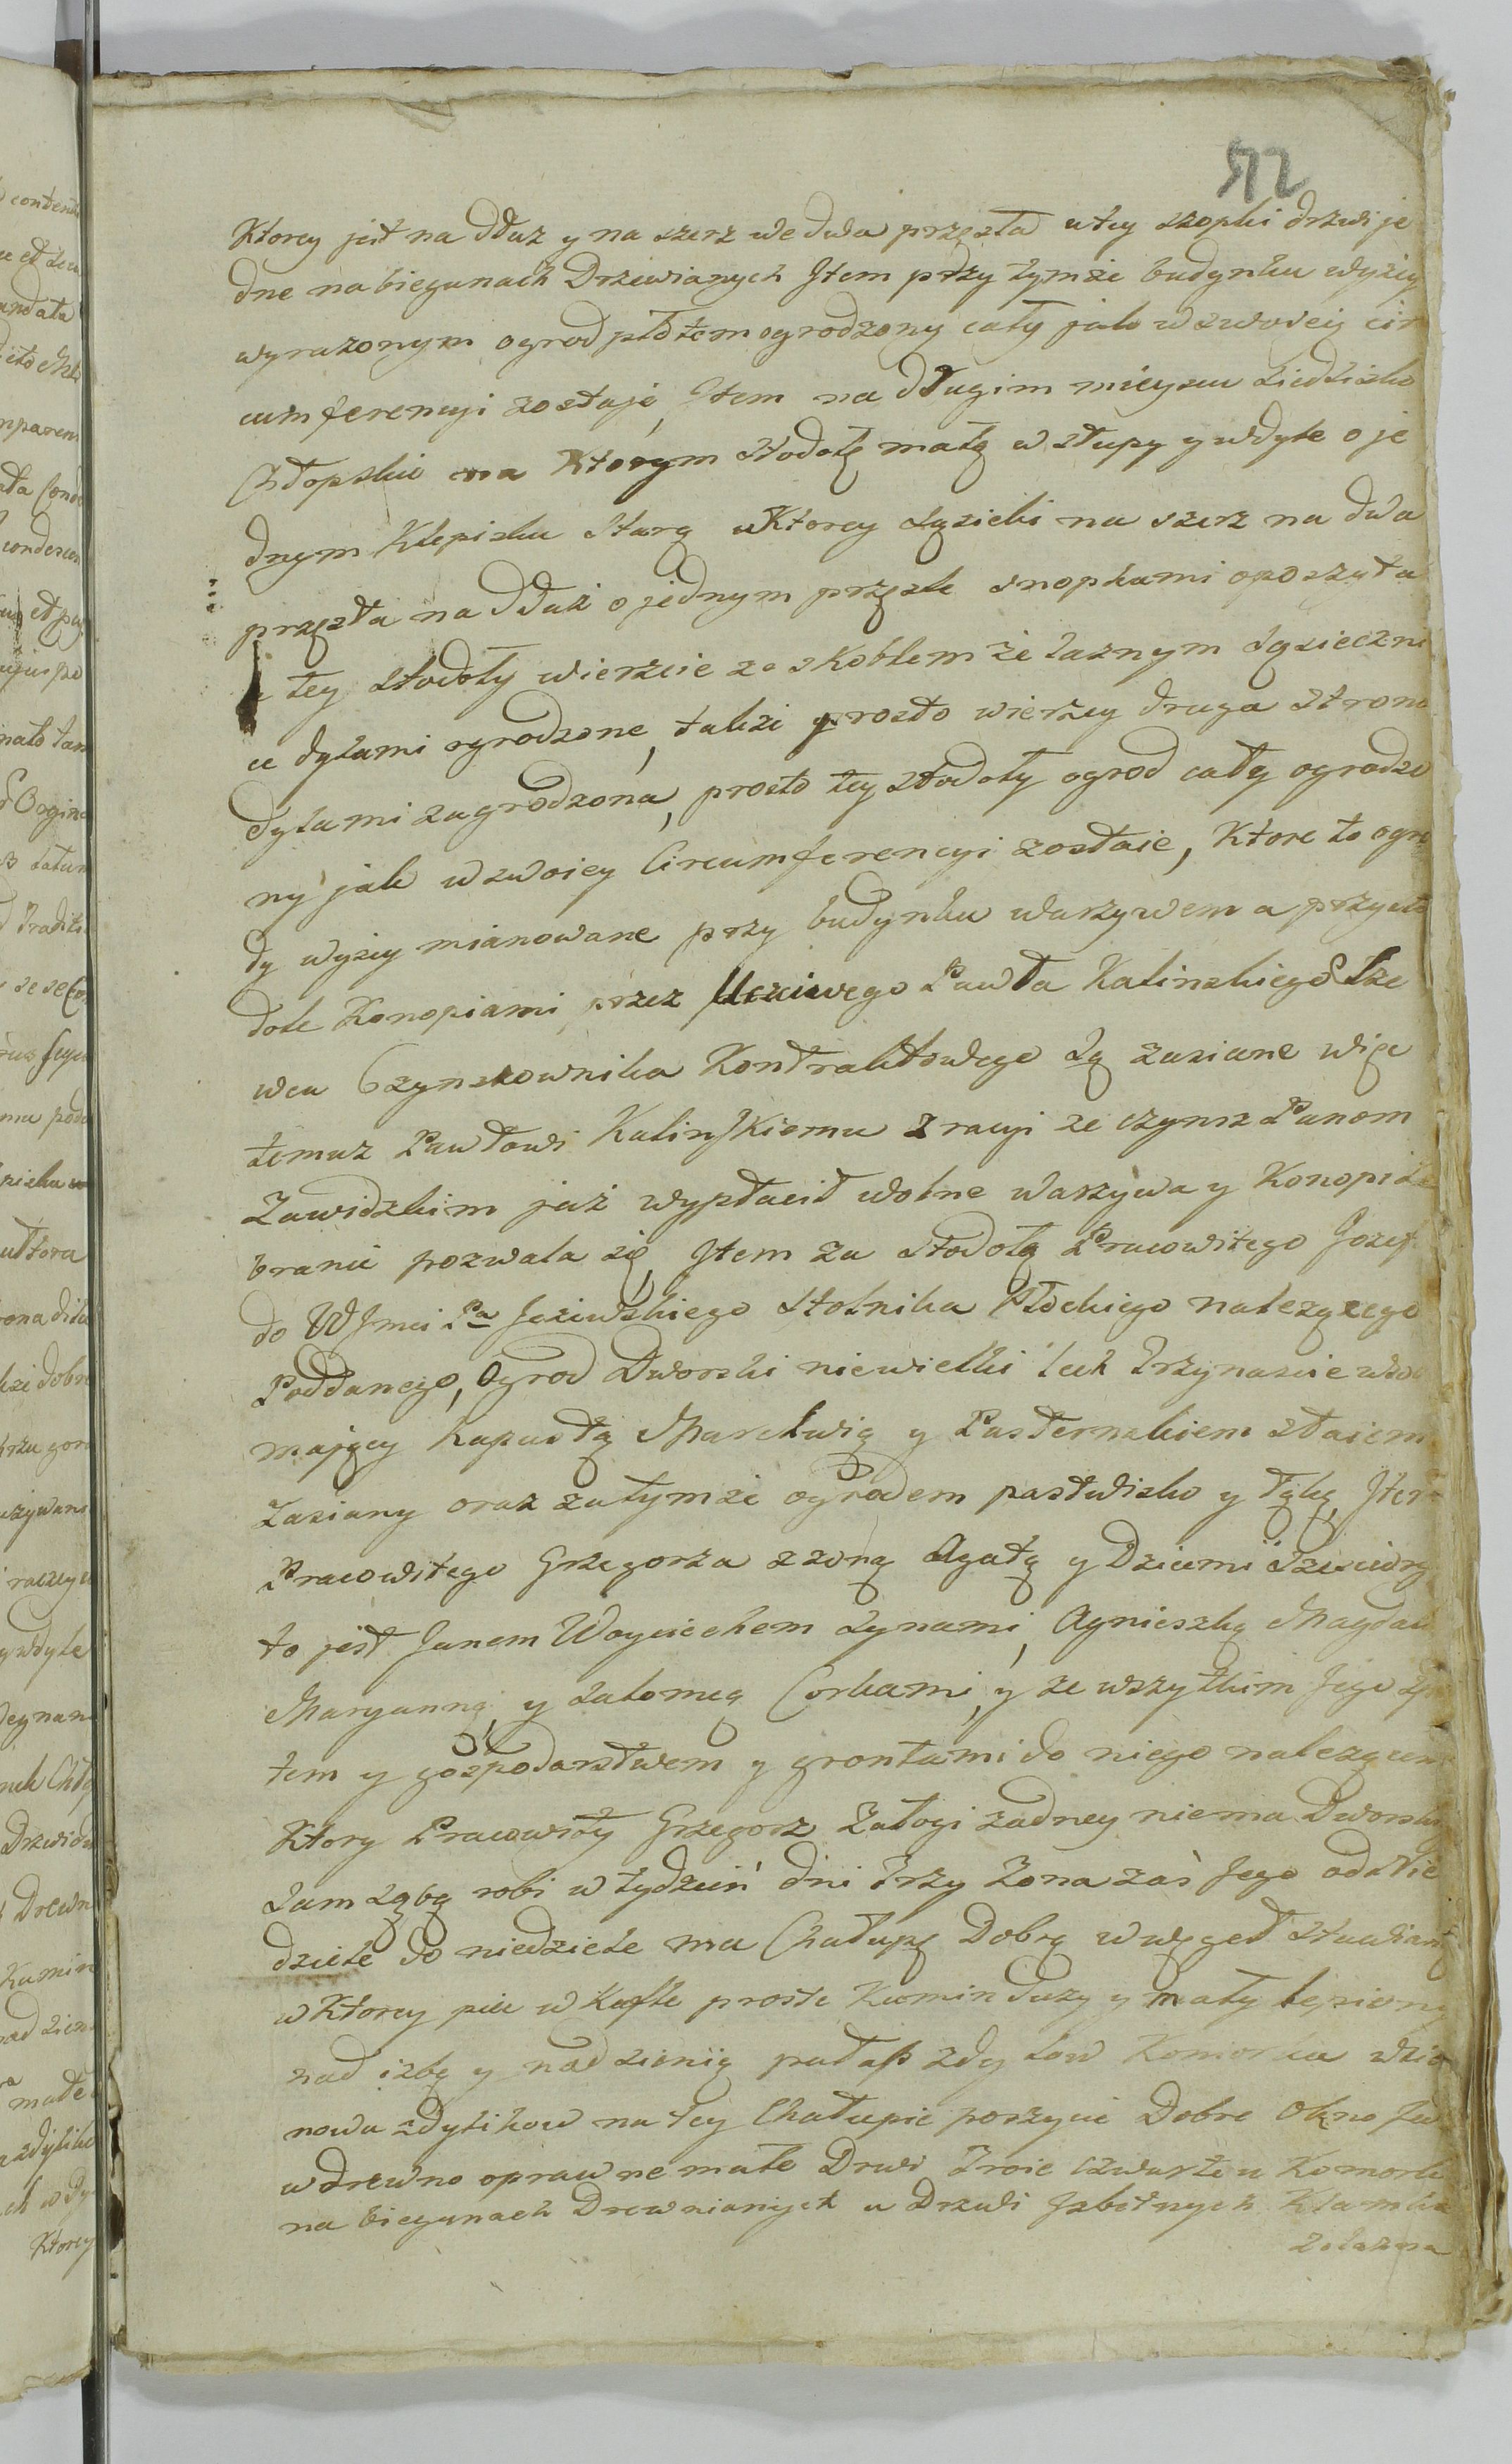 512
Ktorey jest na dłuz y na szerz we dwa przęsła u tey szopki drzwi je
dne na biegunach Drzewianych Jtem przy tymże budynku wyżey
wyrazonym ogrod płotem ogrodzony cały jak w swoiey cir
cumferencyi zostaje, Jtem na długim mieyscu siedlisko
Chłopskie na Ktorym stodołę małę w słupy y w dyle o je
dnym Klepisku starą u Ktorey sąsieki na szerz na dwa
przęsła na dłuż o jednym przęśle snopkami oposzyta
u tey stodoły wierzcie ze skoblem żelaznym sąsieczni
ce dylami ogrodzone, także prosto wierzey druga strona
dylami zagrodzona, prosto tey stodoły ogrod cały ogrodzo
ny jak w swoiey Circumferencyi zostaie, Ktore to ogro
dy wyżey mianowane przy budynku warzywem a przy sto
dole Konopiami przez Uczciwego Pawła Kalinskiego Sze
wca Czynszownika Kontraktowego są zasiane więc
temuz Pawłowi Kalinskiemu z racyi ze czynsz Panom
Zawidzkim już wypłacił wolne warzywa y Konopi ze
branie pozwala się, Jtem za stodołą Pracowitego Jozefa
do WJmci Pa Jeziewskiego Stolnika Płockiego nalezącego
Poddanego, Ogrod Dworski niewielki lech Trzynascie w sobie
mający Kapustą Marchwią y Pasternakiem staiem
Zasiany oraz za tymże ogrodem pastwisko y łąkę, Jtem
Pracowitego Grzegorza z zoną Agatą y Dziećmi Sześciorg
to jest Janem Woyciechem synami, Agnieszką Magdal
Maryanną, y Salomeą Corkami, y ze wszytkim Jego sprzę
tem y gospodarstwem y grontami do niego należącemi
Ktory Pracowity Grzegorz Załogi zadney niema Dworskiey
Sam sobą robi w tydzień dni Trzy Zona zaś Jego od Nie
dziele do niedziele ma Chałupę Dobrą w węgeł stawianą
w Ktorey piec w kafle proste Komin duzy y mały lepiony
nad izbą y nad sienią pułap z dylow Komorka w sio
nowa z dylikow na tey Chałupie poszycie Dobre Okno Jed
w drewno oprawne małe Drwi Troie czwarte u Komorki
na biegunach Drewnianych u Drzwi Jzbetnych Klamka
Zelazna